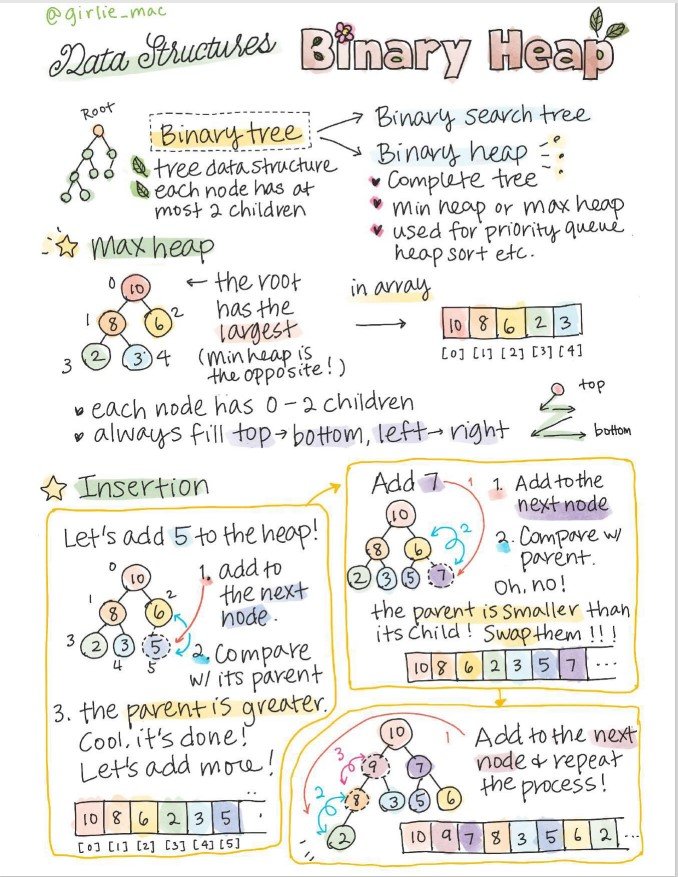 @girlie_mac
Data Structures Binary Heap
Root
Binary tree
tree data structure
each node has at
most 2 children
Binary search tree
Binary heap
Complete tree
min heap or max heap
used for priority queue,
heap sort etc.
Max heap
0
10
1
8
6
2
3
2
3
4
← the root
has the
largest
(min heap is
the opposite!)
in array
10 8 6 2 3
[0] [1] [2] [3] [4]
each node has 0 - 2 children
always fill top → bottom, left → right
top
bottom
Insertion
Let's add 5 to the heap!
0
10
1
8
6
2
3
2
3
5
4
5
1. add to
the next
node.
2. Compare
w/ its parent
3. the parent is greater.
Cool, it's done!
Let's add more!
10 8 6 2 3 5
[0] [1] [2] [3] [4] [5]
Add 7
1
10
8
6
2
2 3 5 7
1. Add to the
next node
2. Compare w/
parent.
Oh, no!
the parent is smaller than
its child! Swap them!!!
10 8 6 2 3 5 7 ...
1
10
3
9
7
2
8
3 5 6
2
Add to the next
node & repeat
the process!
10 9 7 8 3 5 6 2 ...